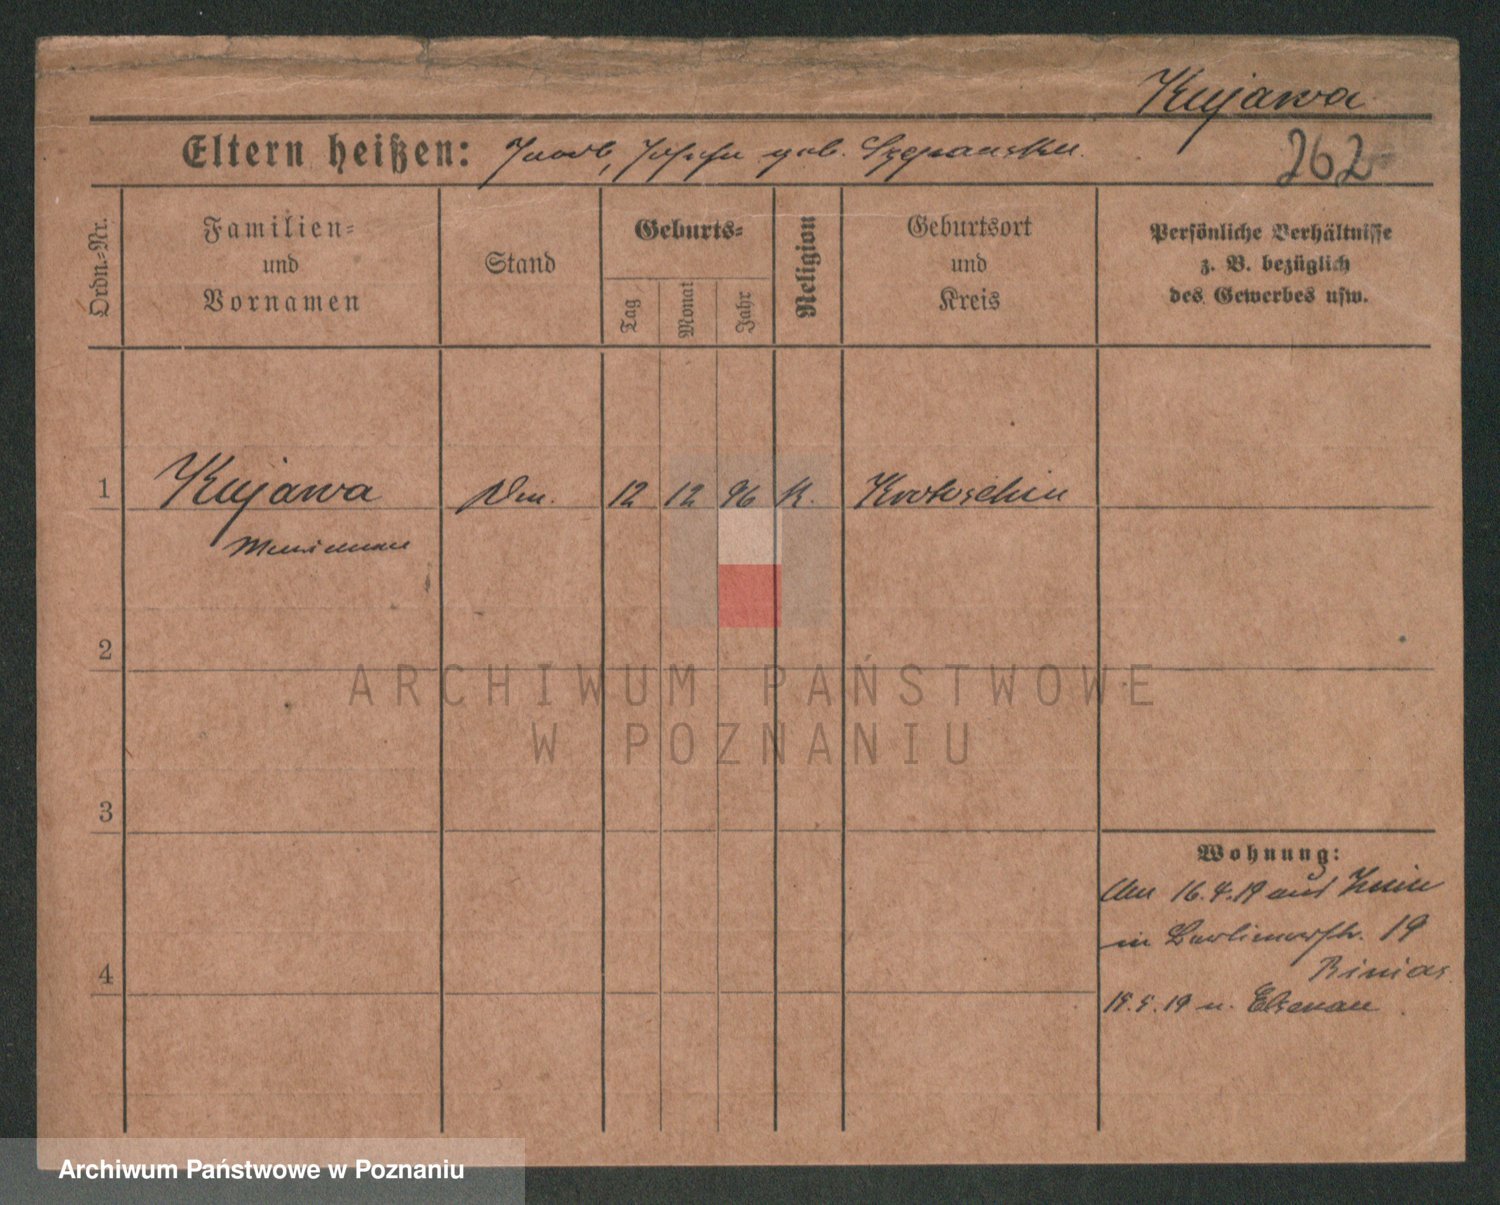 Kujawa
Eltern heißen: Jacob, Josefa geb. Szepanska
262
Ordn.-Nr.
Familien-
und
Vornamen
Stand
Geburts-
Tag
Monat
Jahr
Religion
Geburtsort
und
Kreis
Persönliche Verhältnisse
z. B. bezüglich
des Gewerbes usw.
1 Kujawa 12 12 96 K. Krotoschin
Marianna
2
ARCHIWUM PAŃSTWOWE
W POZNANIU
3
Wohnung:
16.4.19 aus Znin
in Berlinerstr. 19
4
19 n. Elsenau
Archiwum Państwowe w Poznaniu